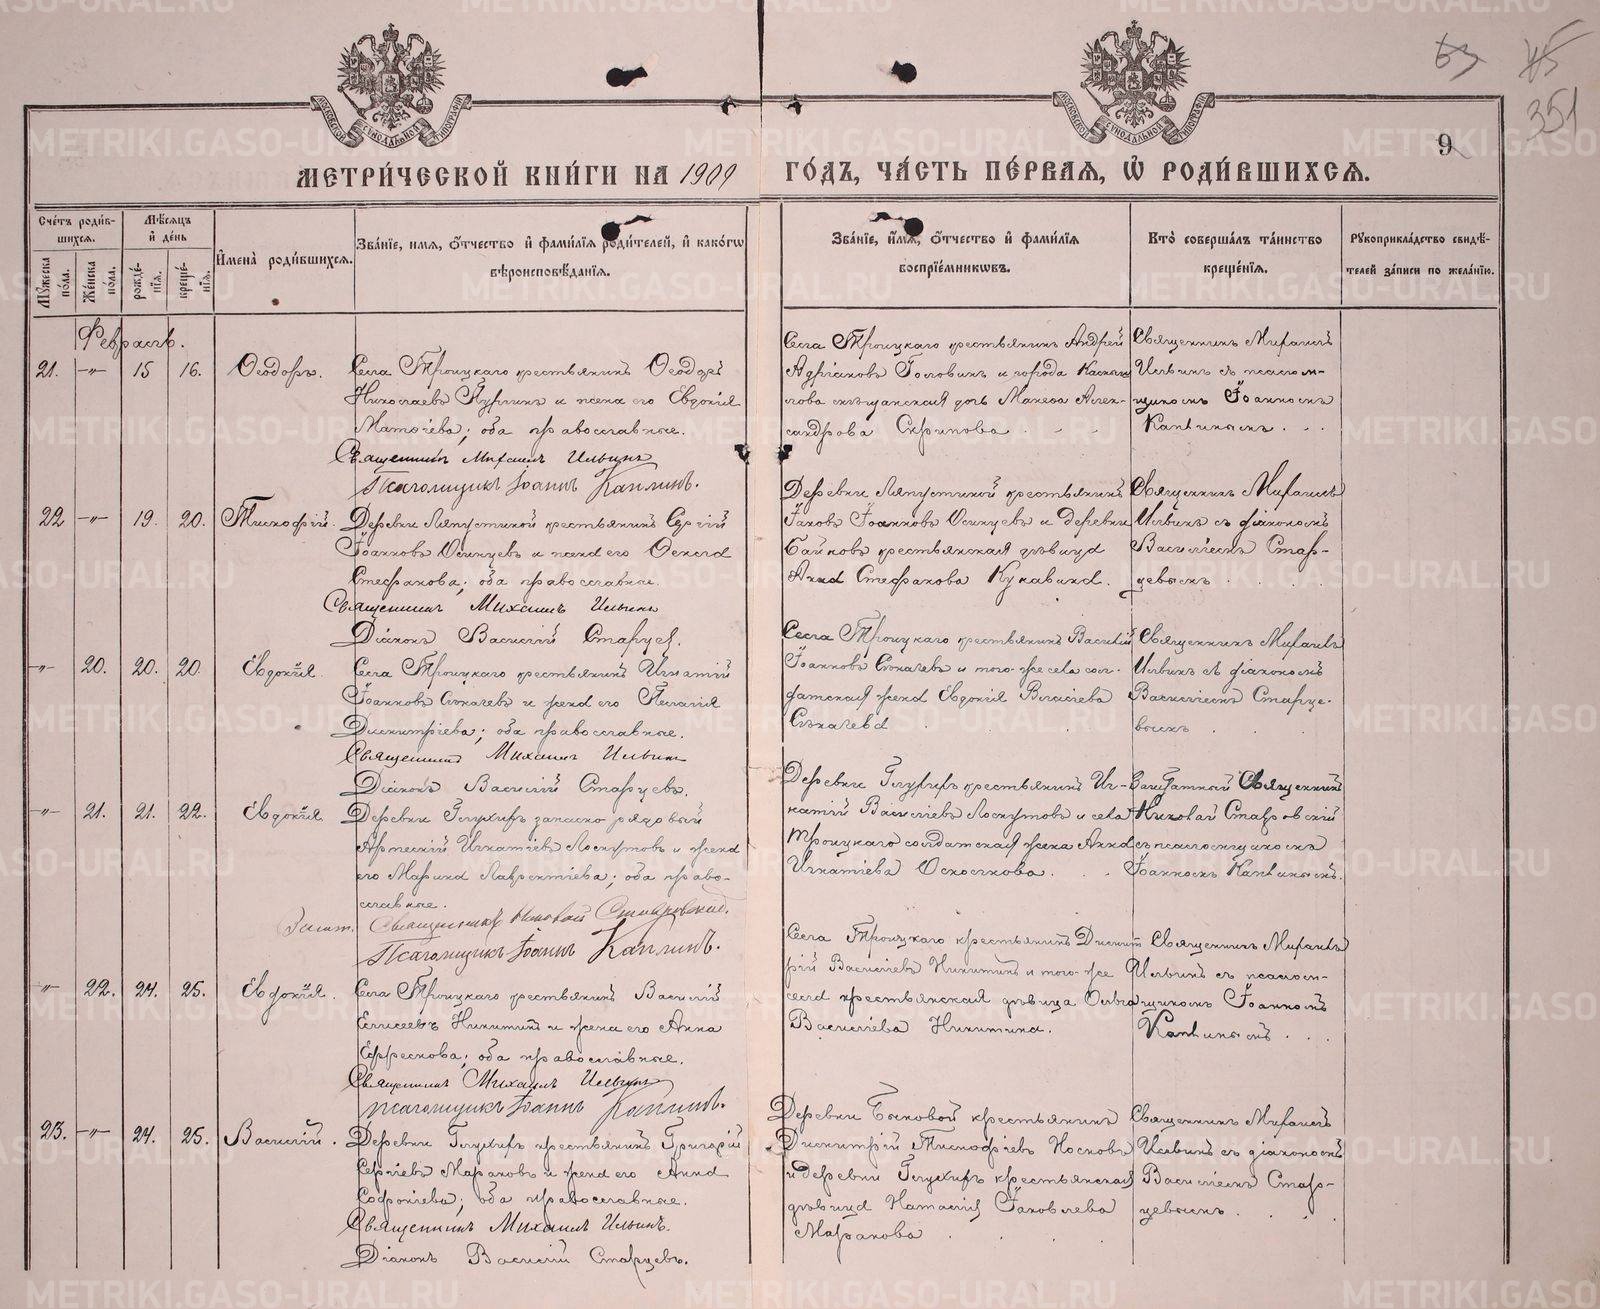 63 45
351
9
МОСКОВСКОЙ СѴНОДАЛЬНОЙ ТИПОГРАФІИ
МОСКОВСКОЙ СѴНОДАЛЬНОЙ ТИПОГРАФІИ
МЕТРИ́ЧЕСКОЙ КНИ́ГИ НА 1909 ГО́ДЪ, ЧА́СТЬ ПЕ́РВАЯ, Ѡ҆ РОДИ́ВШИХСЯ.
Сче́тъ роди́в-
шихся.
Мѣ́сяцъ
и҆ де́нь
Мꙋ́жеска по́ла.
Же́нска по́ла.
рожде́-
нїя.
креще́-
нїя.
И҆мена̀ роди́вшихся.
Зва́нїе, имя, о҆́тчество и҆ фами́лїя роди́телей, и҆ како́гѡ
вѣроисповѣ́данїя.
Зва́нїе, и҆́мя, о҆́тчество и҆ фами́лїя
воспрїе́мникѡвъ.
Кто̀ соверша́лъ та́инство
креще́нїя.
Рꙋкоприкла́дство свидѣ́-
телей за́писи по жела́нїю.
Февраль.
21. -"- 15 16. Ѳеодоръ.
Села Троицкаго крестьянинъ Ѳеодоръ
Николаевъ и жена его Евдокія
оба православные.
Священникъ Михаилъ Ильинъ
Псаломщикъ Іоаннъ Каплинъ.
Села Троицкаго крестьянинъ Андрей
Адріановъ Головинъ и города Камыш
лова мѣщанская дочь Алек-
сандрова Скрипова
Священникъ Михаилъ
Ильинъ съ псалом-
щикомъ Іоанномъ
Каплинымъ
22 -"- 19. 20. Тимофей.
Деревни Ляпустиной крестьянинъ Сергій
Іоанновъ Осинцевъ и жена его
Стефанова; оба православные.
Священникъ Михаилъ Ильинъ
Діаконъ Василій Старцев.
Деревни Ляпустиной крестьянинъ
Іаковъ Іоанновъ Осинцевъ и деревни
крестьянская дѣвица
Анна Стефанова Кукавина.
Священникъ Михаилъ
Ильинъ съ діакономъ
Василіемъ Стар-
цевымъ
-"- 20. 20. 20. Евдокія.
Села Троицкаго крестьянинъ Игнатій
Іоанновъ и жена его Пелагія
Димитріева; оба православные.
Священникъ Михаилъ Ильинъ
Діаконъ Василій Старцевъ.
Села Троицкаго крестьянинъ Василій
Іоанновъ и того-же села сол-
датская жена Евдокія Власіева
Священникъ Михаилъ
Ильинъ съ діакономъ
Василіемъ Старце-
вымъ
-"- 21. 21. 22. Евдокія
Деревни Глухихъ запасно рядовый
Игнатіевъ Лоскутовъ и жена
его Марина Лаврентіева; оба право-
славные.
Зашт. Священникъ Николай Ставровскій.
Псаломщикъ Іоаннъ Каплинъ.
Деревни Глухихъ крестьянинъ Иг-
натій Василіевъ Лоскутовъ и села
Троицкаго солдатская жена Анна
Игнатіева
Заштатный Священникъ
Николай Ставровскій
съ псаломщикомъ
Іоанномъ Каплинымъ.
-"- 22. 24. 25. Евдокія.
Села Троицкаго крестьянинъ Василій
Елисеевъ Никитинъ и жена его Анна
Ефремова; оба православные.
Священникъ Михаилъ Ильинъ
псаломщикъ Іоаннъ Каплинъ.
Села Троицкаго крестьянинъ Димит
рій Василіевъ Никитинъ и того-же
села крестьянская дѣвица Ольга
Василіева Никитина.
Священникъ Михаилъ
Ильинъ съ псалом-
щикомъ Іоанномъ
Каплинымъ
23. -"- 24. 25. Василій.
Деревни Глухихъ крестьянинъ Григорій
Сергіевъ Мараковъ и жена его Анна
Софоніева; оба православные.
Священникъ Михаилъ Ильинъ.
Діаконъ Василій Старцевъ.
Деревни Быковой крестьянинъ
Димитрій Тимофіевъ Носковъ
и деревни Глухихъ крестьянская
дѣвица Наталія Іаковлева
Маракова
Священникъ Михаилъ
Ильинъ съ діакономъ
Василіемъ Стар-
цевымъ.
METRIKI.GASO-URAL.RU